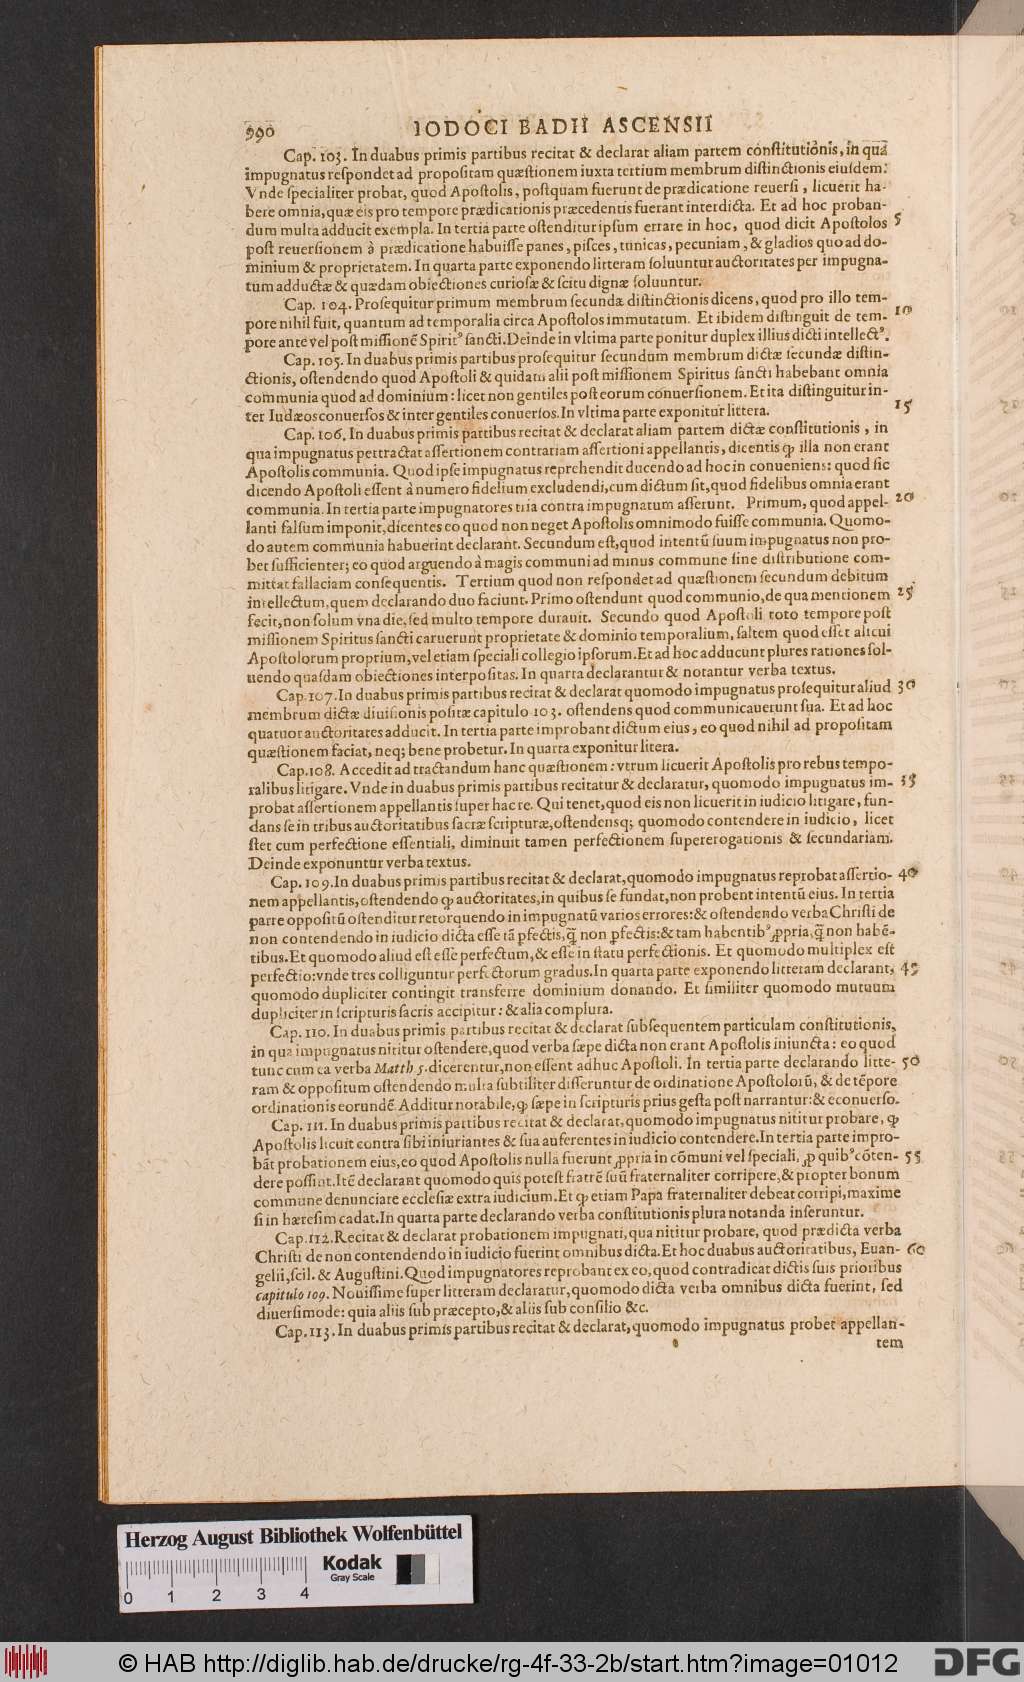 990
IODOCI BADII ASCENSII
Cap. 103. In duabus primis partibus recitat & declarat aliam partem constitutionis, in qua
impugnatus respondet ad propositam quæstionem iuxta tertium membrum distinctionis eiusdem:
Vnde specialiter probat, quod Apostolis, postquam fuerunt de prædicatione reuersi, licuerit ha-
bere omnia, quæ eis pro tempore prædicationis præcedentis fuerant interdicta. Et ad hoc proban-
dum multa adducit exempla. In tertia parte ostenditur ipsum errare in hoc, quod dicit Apostolos 5
post reuersionem à prædicatione habuisse panes, pisces, tunicas, pecuniam, & gladios quo ad do-
minium & proprietatem. In quarta parte exponendo litteram soluuntur auctoritates per impugna-
tum adductæ & quædam obiectiones curiosæ & scitu dignæ soluuntur.
Cap. 104. Prosequitur primum membrum secundæ distinctionis dicens, quod pro illo tem-
pore nihil fuit, quantum ad temporalia circa Apostolos immutatum. Et ibidem distinguit de tem- 10
pore ante vel post missionē Spiritꝰ sancti. Deinde in vltima parte ponitur duplex illius dicti intellectꝰ.
Cap. 105. In duabus primis partibus prosequitur secundum membrum dictæ secundæ distin-
ctionis, ostendendo quod Apostoli & quidam alii post missionem Spiritus sancti habebant omnia
communia quod ad dominium: licet non gentiles post eorum conuersionem. Et ita distinguitur in-
ter Iudæos conuersos & inter gentiles conuersos. In vltima parte exponitur littera. 15
Cap. 106. In duabus primis partibus recitat & declarat aliam partem dictæ constitutionis, in
qua impugnatus pertractat assertionem contrariam assertioni appellantis, dicentis ꝙ illa non erant
Apostolis communia. Quod ipse impugnatus reprehendit ducendo ad hoc inconueniens: quod sic
dicendo Apostoli essent à numero fidelium excludendi, cum dictum sit, quod fidelibus omnia erant
communia. In tertia parte impugnatores tria contra impugnatum asserunt. Primum, quod appel- 20
lanti falsum imponit, dicentes eo quod non neget Apostolis omnimodo fuisse communia. Quomo-
do autem communia habuerint declarant. Secundum est, quod intentū suum impugnatus non pro-
bet sufficienter; eo quod arguendo à magis communi ad minus commune sine distributione com-
mittat fallaciam consequentis. Tertium quod non respondet ad quæstionem secundum debitum
intellectum, quem declarando duo faciunt. Primo ostendunt quod communio, de qua mentionem 25
fecit, non solum vna die, sed multo tempore durauit. Secundo quod Apostoli toto tempore post
missionem Spiritus sancti caruerunt proprietate & dominio temporalium, saltem quod esset alicui
Apostolorum proprium, vel etiam speciali collegio ipsorum. Et ad hoc adducunt plures rationes sol-
uendo quasdam obiectiones interpositas. In quarta declarantur & notantur verba textus.
Cap. 107. In duabus primis partibus recitat & declarat quomodo impugnatus prosequitur aliud 30
membrum dictæ diuisionis positæ capitulo 103. ostendens quod communicauerunt sua. Et ad hoc
quatuor auctoritates adducit. In tertia parte improbant dictum eius, eo quod nihil ad propositam
quæstionem faciat, neq; bene probetur. In quarta exponitur litera.
Cap. 108. Accedit ad tractandum hanc quæstionem: vtrum licuerit Apostolis pro rebus tempo-
ralibus litigare. Vnde in duabus primis partibus recitatur & declaratur, quomodo impugnatus im- 35
probat assertionem appellantis super hac re. Qui tenet, quod eis non licuerit in iudicio litigare, fun-
dans se in tribus auctoritatibus sacræ scripturæ, ostendensq; quomodo contendere in iudicio, licet
stet cum perfectione essentiali, diminuit tamen perfectionem supererogationis & secundariam.
Deinde exponuntur verba textus.
Cap. 109. In duabus primis partibus recitat & declarat, quomodo impugnatus reprobat assertio- 40
nem appellantis, ostendendo ꝙ auctoritates, in quibus se fundat, non probent intentū eius. In tertia
parte oppositū ostenditur retorquendo in impugnatū varios errores: & ostendendo verba Christi de
non contendendo in iudicio dicta esse tā ꝑfectis, q̄ non ꝑfectis: & tam habentibꝰ ꝓpria, q̄ non habē-
tibus. Et quomodo aliud est esse perfectum, & esse in statu perfectionis. Et quomodo multiplex est
perfectio: vnde tres colliguntur perfectorum gradus. In quarta parte exponendo litteram declarant, 45
quomodo dupliciter contingit transferre dominium donando. Et similiter quomodo mutuum
dupliciter in scripturis sacris accipitur: & alia complura.
Cap. 110. In duabus primis partibus recitat & declarat subsequentem particulam constitutionis,
in qua impugnatus nititur ostendere, quod verba sæpe dicta non erant Apostolis iniuncta: eo quod
tunc cum ea verba Matth 5. dicerentur, non essent adhuc Apostoli. In tertia parte declarando litte- 50
ram & oppositum ostendendo multa subtiliter disseruntur de ordinatione Apostolorū, & de tēpore
ordinationis eorundē. Additur notabile, ꝙ sæpe in scripturis prius gesta post narrantur: & econuerso.
Cap. 111. In duabus primis partibus recitat & declarat, quomodo impugnatus nititur probare, ꝙ
Apostolis licuit contra sibi iniuriantes & sua auferentes in iudicio contendere. In tertia parte impro-
bāt probationem eius, eo quod Apostolis nulla fuerunt ꝓpria in cōmuni vel speciali, ꝓ quibꝰ cōten- 55
dere possint. Itē declarant quomodo quis potest fratrē suū fraternaliter corripere, & propter bonum
commune denunciare ecclesiæ extra iudicium. Et ꝙ etiam Papa fraternaliter debeat corripi, maxime
si in hæresim cadat. In quarta parte declarando verba constitutionis plura notanda inseruntur.
Cap. 112. Recitat & declarat probationem impugnati, qua nititur probare, quod prædicta verba
Christi de non contendendo in iudicio fuerint omnibus dicta. Et hoc duabus auctoritatibus, Euan- 60
gelii, scil. & Augustini. Quod impugnatores reprobant ex eo, quod contradicat dictis suis prioribus
capitulo 109. Nouissime super litteram declaratur, quomodo dicta verba omnibus dicta fuerint, sed
diuersimode: quia aliis sub præcepto, & aliis sub consilio &c.
Cap. 113. In duabus primis partibus recitat & declarat, quomodo impugnatus probet appellan-
tem
Herzog August Bibliothek Wolfenbüttel
Kodak
Gray Scale
0 1 2 3 4
© HAB http://diglib.hab.de/drucke/rg-4f-33-2b/start.htm?image=01012
DFG